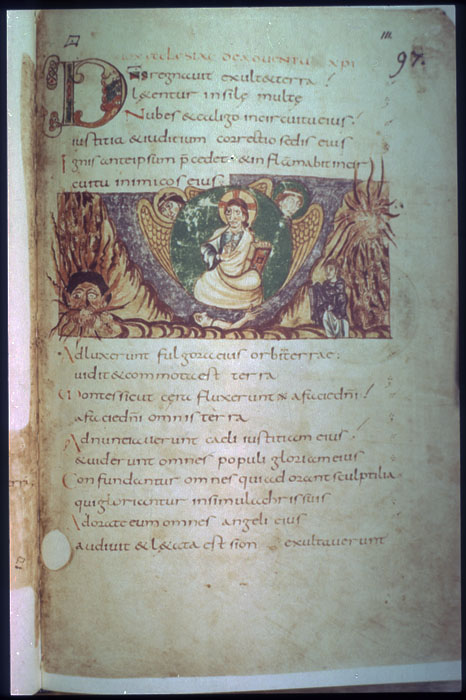 97.
uox eclesiae de aduentu xpi
DNS regnauit exult& terra
l&entur insulę multę
Nubes & caligo in circuitu eius
iustitia & iuditium correctio sedis eius
Ignis ante ipsum p̄cedet & inflāmabit incir
cuitu inimicos eius
Adluxerunt fulgora eius orbi terrae
uidit & commota est terra
Montes sicut cęra fluxerunt a facie dn̄i
a facie dn̄i omnis terra
Adnunciauerunt caeli iustitiam eius
& uiderunt omnes populi gloriam eius
Confundantur omnes qui adorant sculptilia
qui gloriantur in simulachris suis
Adorate eum omnes angeli eius
audiuit & l&ata est sion exultauerunt